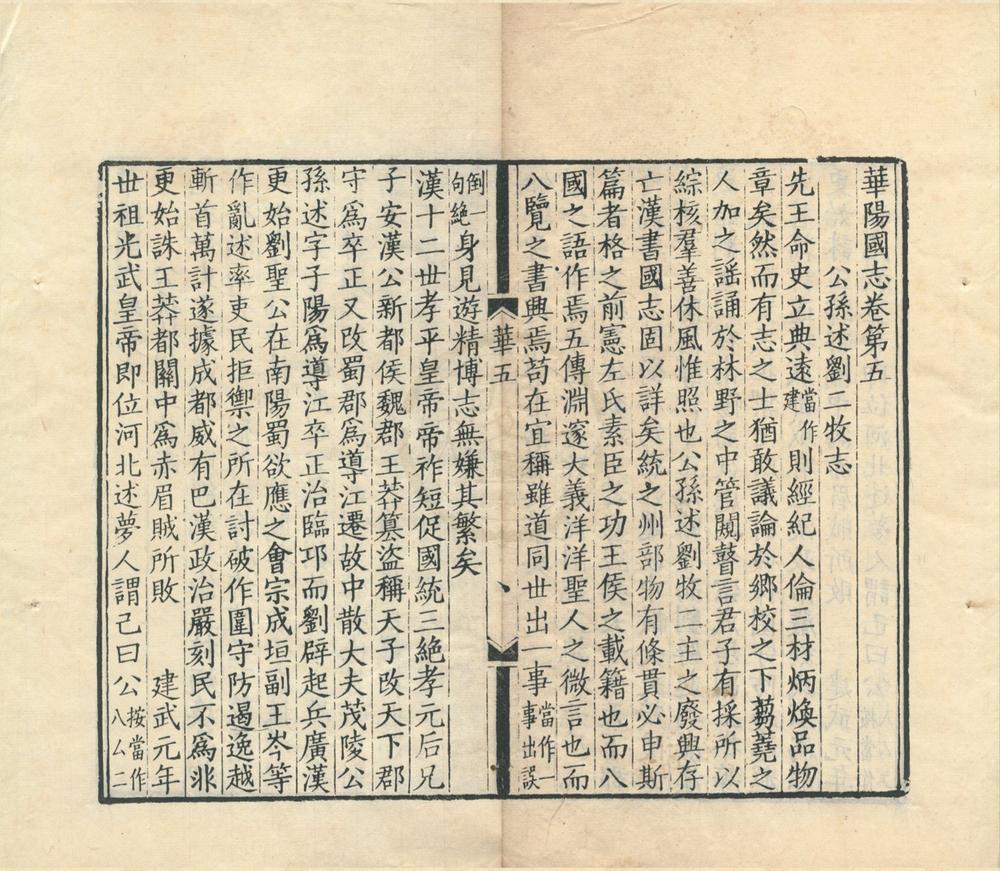 華陽國志卷第五
公孫述劉二牧志
先王命史立典遠當作建則經紀人倫三材炳煥品物
章矣然而有志之士猶敢議論於鄉校之下芻蕘之
人加之謡誦於林野之中管闚瞽言君子有採所以
綜核羣善休風惟照也公孫述劉牧二主之廢興存
亡漢書國志固以詳矣統之州部物有條貫必申斯
篇者格之前憲左氏素臣之功王侯之載籍也而八
國之語作焉五傳淵邃大義洋洋聖人之微言也而
八覽之書興焉苟在宜稱雖道同世出一事當作一事出誤
華五
倒一句絶身見遊精博志無嫌其繁矣
漢十二世孝平皇帝帝祚短促國統三絶孝元后兄
子安漢公新都侯魏郡王莽篡盜稱天子改天下郡
守爲卒正又改蜀郡爲導江遷故中散大夫茂陵公
孫述字子陽爲導江卒正治臨邛而劉辟起兵廣漢
更始劉聖公在南陽蜀欲應之會宗成垣副王岑等
作亂述率吏民拒禦之所在討破作圍守防遏逸越
斬首萬計遂據成都威有巴漢政治嚴刻民不爲非
更始誅王莽都關中爲赤眉賊所敗 建武元年
世祖光武皇帝即位河北述夢人謂己曰公按當作八厶二